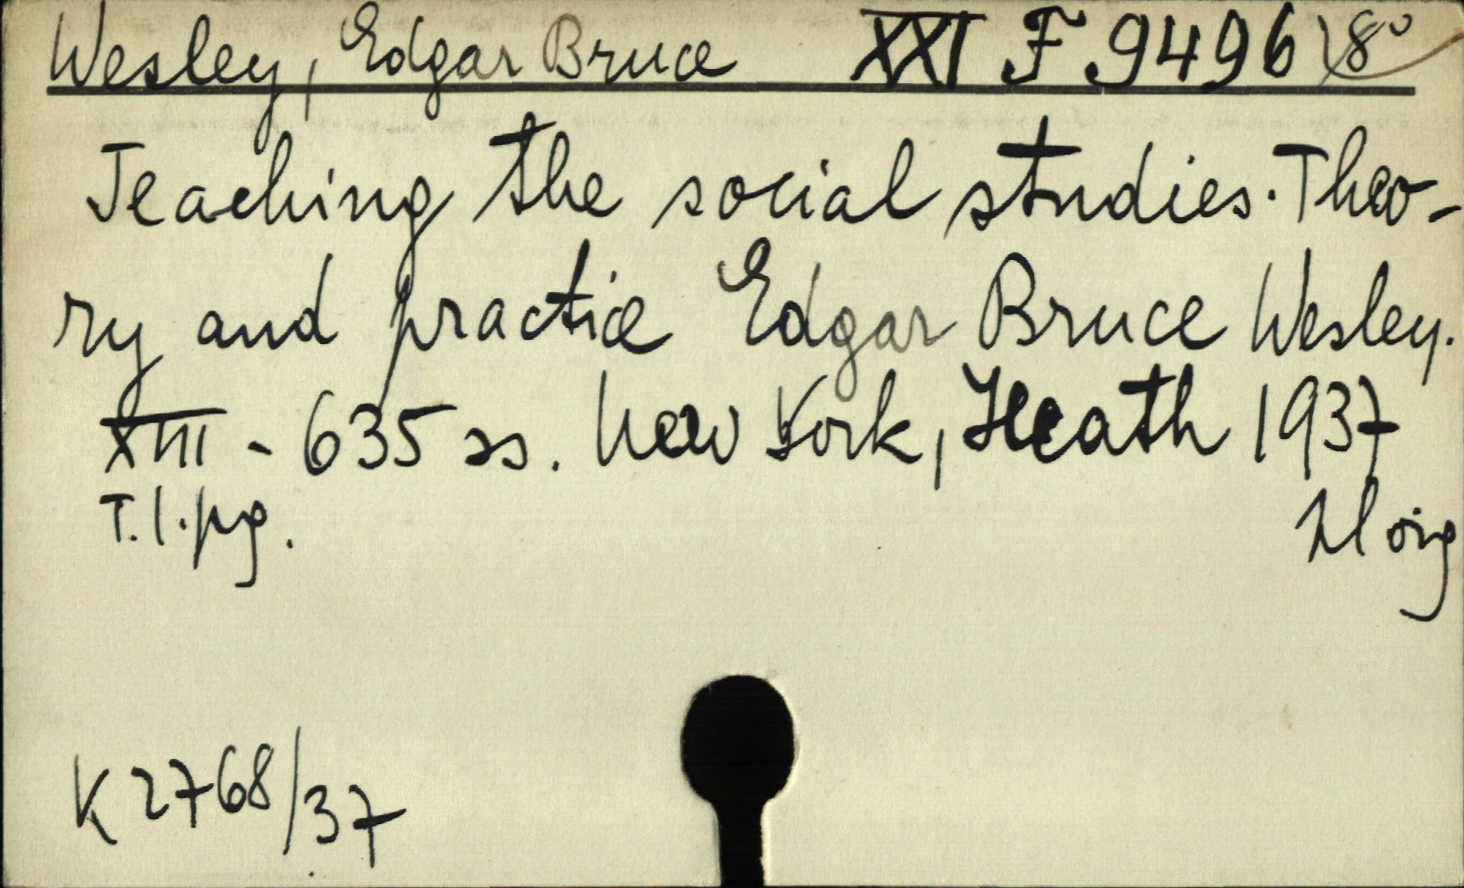 Wesley, Edgar Bruce XXI F 9496 8°
Teaching the social studies. Theo-
ry and practice Edgar Bruce Wesley.
XIII - 635 ss. New York, Heath 1937
T. l. pg.
orig
K 2768/37